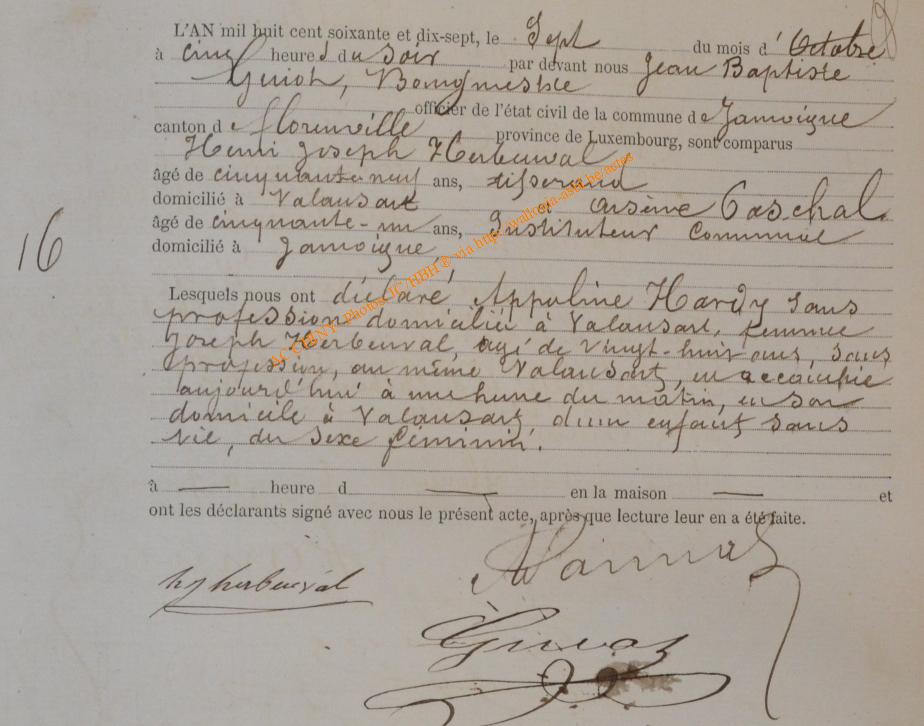 L'AN mil huit cent soixante et dix-sept, le Sept du mois d' Octobre
à cinq heures du soir par devant nous Jean Baptiste
Guiot, Bourgmestre
officier de l'état civil de la commune de Jamoigne
canton de Florenville province de Luxembourg, sont comparus
Henri Joseph Herbeuval
âgé de cinquante neuf ans, tisserand
domicilié à Valansart et Arsène Paschal
âgé de cinquante-un ans, Instituteur Communal
domicilié à Jamoigne,
16
Lesquels nous ont déclaré Appoline Hardy sans
profession domiciliée à Valansart, femme
Joseph Herbeuval, agé de vingt-huit ans, sans
profession, au même Valansart, est accouchée
aujourd'hui à une heure du matin, en son
domicile à Valansart, d'un enfant sans
vie, du sexe féminin.
à — heure d — en la maison — et
ont les déclarants signé avec nous le présent acte, après que lecture leur en a été faite.
hj herbeuval
Guiot
ACCUBNY- Photos JC/HBH © via http://wallonia-asbl.be.actes